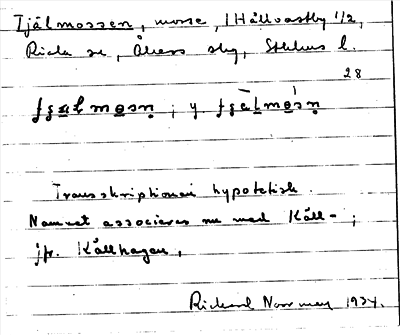 Tjälmossen, mosse, i Hållvastby 1/2,
Riala sn, Åkers slg, Sthlms l.
28
Transskriptionen hypotetisk.
Namnet associeras nu med Käll- ;
jfr. Källhagen,
Rickard Norrmay 1934.